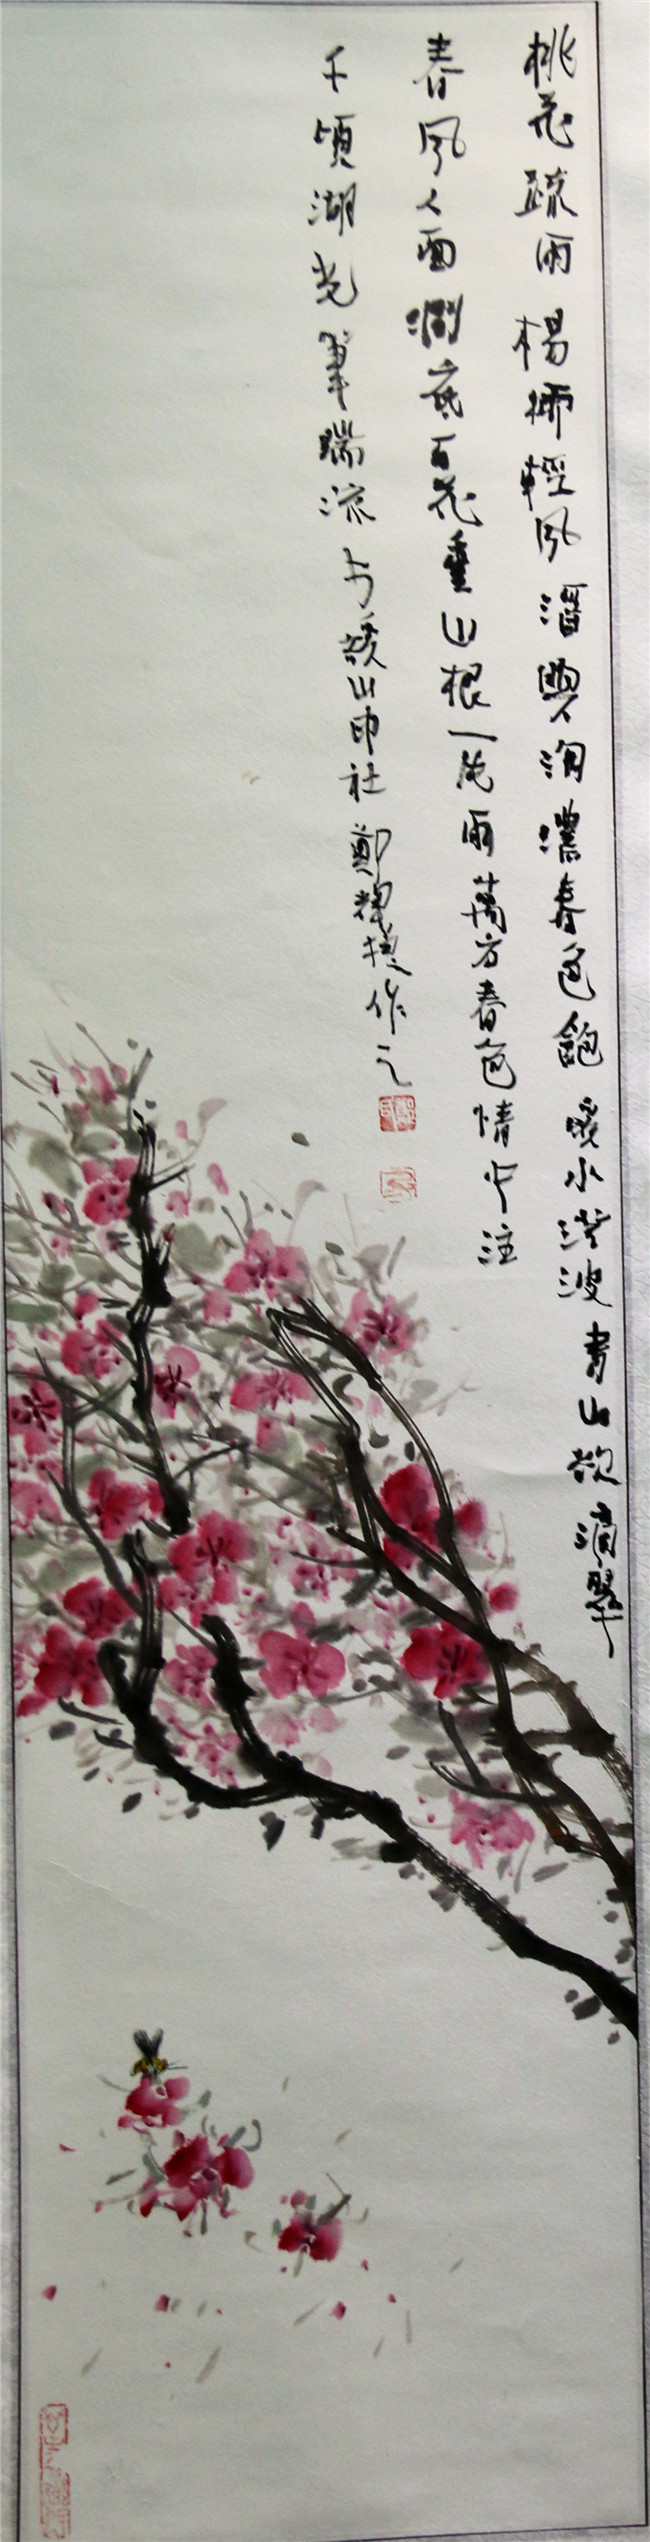 桃花疏雨楊擺輕風酒興濃春色飽暖水澄波青山欲滴翠
春風人面澗底百花重山根一夜雨萬方春色情中注
千頃湖光筆端流 山印社鄭 作之